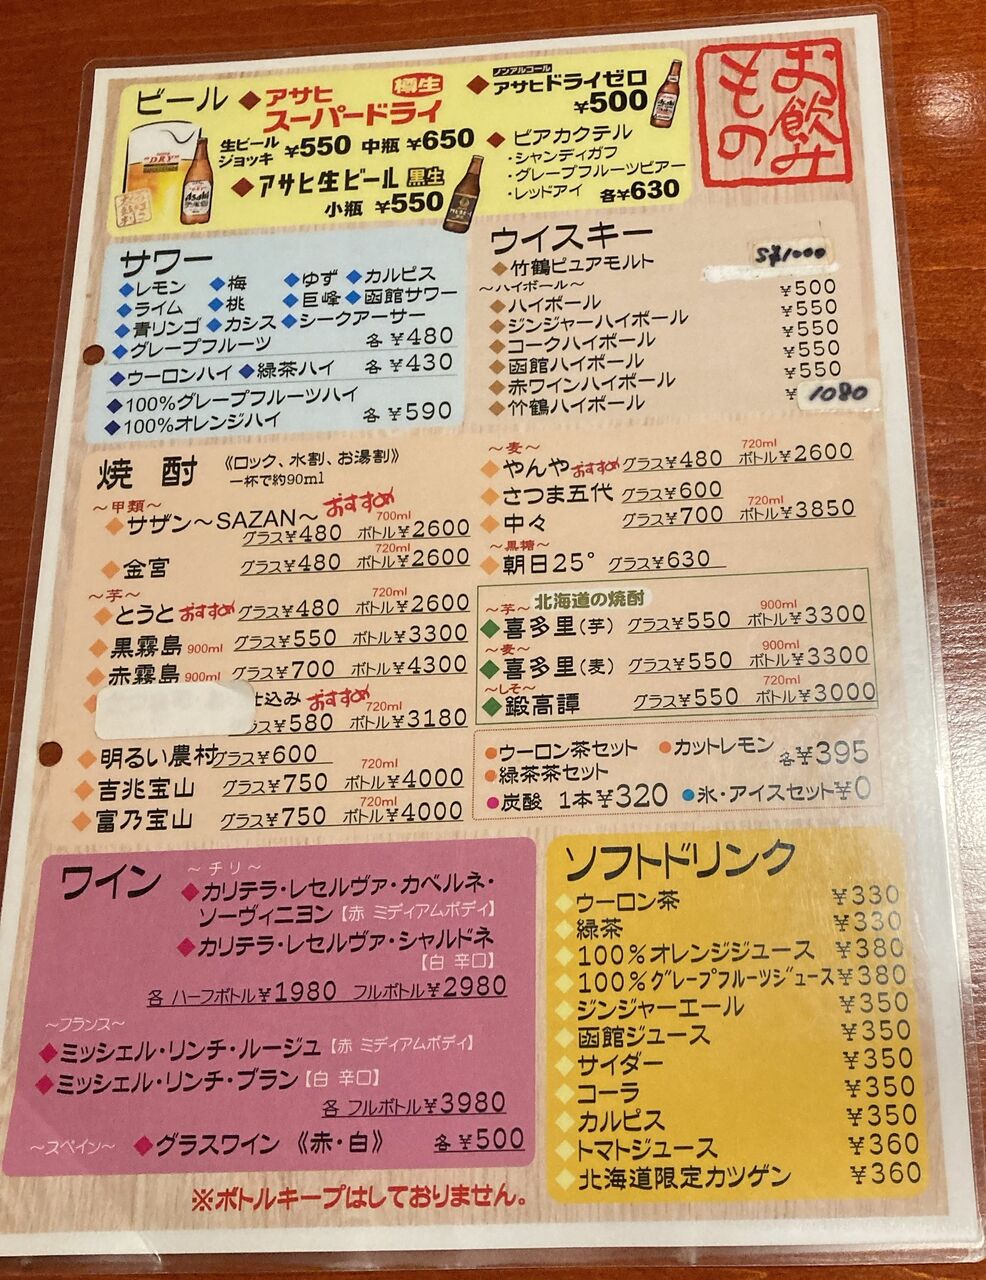 お飲みもの
ビール
◆アサヒ 樽生
スーパードライ
生ビール ジョッキ ¥550 中瓶 ¥650
◆アサヒ生ビール 黒生
小瓶 ¥550
ノンアルコール
◆アサヒドライゼロ
¥500
◆ビアカクテル
・シャンディガフ
・グレープフルーツビアー
・レッドアイ 各¥630
サワー
◆レモン ◆梅 ◆ゆず ◆カルピス
◆ライム ◆桃 ◆巨峰 ◆函館サワー
◆青リンゴ ◆カシス ◆シークアーサー
◆グレープフルーツ 各 ¥480
◆ウーロンハイ ◆緑茶ハイ 各 ¥430
◆100%グレープフルーツハイ
◆100%オレンジハイ 各 ¥590
ウイスキー
◆竹鶴ピュアモルト S¥1000
～ハイボール～
◆ハイボール ¥500
◆ジンジャーハイボール ¥550
◆コークハイボール ¥550
◆函館ハイボール ¥550
◆赤ワインハイボール ¥550
◆竹鶴ハイボール ¥1080
焼酎 《ロック、水割、お湯割》
一杯で約90ml
～甲類～
◆サザン～SAZAN～ おすすめ
グラス¥480 700ml ボトル¥2600
◆金宮 グラス¥480 720ml ボトル¥2600
～芋～
◆とうと おすすめ グラス¥480 720ml ボトル¥2600
◆黒霧島 900ml グラス¥550 ボトル¥3300
◆赤霧島 900ml グラス¥700 ボトル¥4300
仕込み おすすめ
ラス¥580 720ml ボトル¥3180
◆明るい農村 グラス¥600
◆吉兆宝山 グラス¥750 720ml ボトル¥4000
◆富乃宝山 グラス¥750 720ml ボトル¥4000
～麦～
◆やんや おすすめ グラス¥480 720ml ボトル¥2600
◆さつま五代 グラス¥600
◆中々 グラス¥700 720ml ボトル¥3850
～黒糖～
◆朝日25° グラス¥630
北海道の焼酎
～芋～
◆喜多里(芋) グラス¥550 900ml ボトル¥3300
～麦～
◆喜多里(麦) グラス¥550 900ml ボトル¥3300
～しそ～
◆鍛高譚 グラス¥550 720ml ボトル¥3000
●ウーロン茶セット ●カットレモン 各¥395
●緑茶茶セット
●炭酸 1本¥320 ●氷・アイスセット¥0
ワイン
～チリ～
◆カリテラ・レセルヴァ・カベルネ・
ソーヴィニヨン【赤 ミディアムボディ】
◆カリテラ・レセルヴァ・シャルドネ
【白 辛口】
各 ハーフボトル¥1980 フルボトル¥2980
～フランス～
◆ミッシェル・リンチ・ルージュ【赤 ミディアムボディ】
◆ミッシェル・リンチ・ブラン【白 辛口】
各 フルボトル¥3980
～スペイン～ ◆グラスワイン《赤・白》 各¥500
※ボトルキープはしておりません。
ソフトドリンク
◆ウーロン茶 ¥330
◆緑茶 ¥330
◆100%オレンジジュース ¥380
◆100%グレープフルーツジュース¥380
◆ジンジャーエール ¥350
◆函館ジュース ¥350
◆サイダー ¥350
◆コーラ ¥350
◆カルピス ¥350
◆トマトジュース ¥360
◆北海道限定カツゲン ¥360